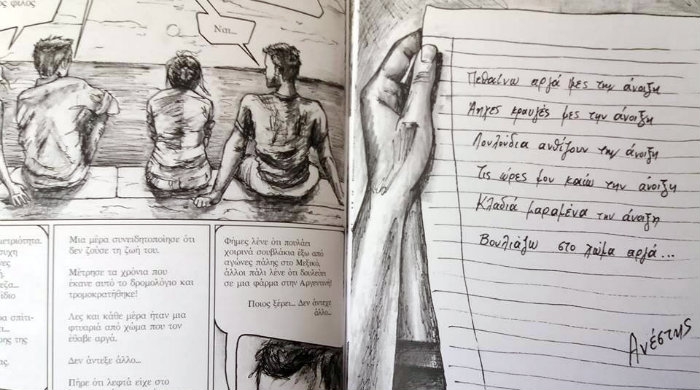 ος φίλος
Ναι...
μετριότητα.
συχη
νες
εζα...
ίδιο
α σπίτι-
ση της
ας.
Μια μέρα συνειδητοποίησε ότι
δεν ζούσε τη ζωή του.
Μέτρησε τα χρόνια που
έκανε αυτό το δρομολόγιο και
τρομοκρατήθηκε!
Λες και κάθε μέρα ήταν μια
φτυαριά από χώμα που τον
έθαβε αργά.
Δεν άντεξε άλλο...
Πήρε ότι λεφτά είχε στο
Φήμες λένε ότι πουλάει
χοιρινά σουβλάκια έξω από
αγώνες πάλης στο Μεξικό,
άλλοι πάλι λένε ότι δουλεύει
σε μια φάρμα στην Αργεντινή!
Ποιος ξέρει... Δεν άντεχε
άλλο...
Πεθαίνω αργά μες την άνοιξη
Άηχες κραυγές μες την άνοιξη
Λουλούδια ανθίζουν την άνοιξη
Τις ώρες μου καίω την άνοιξη
Κλαδιά μαραμένα την άνοιξη
Βουλιάζω στο χώμα αργά...
Ανέστης